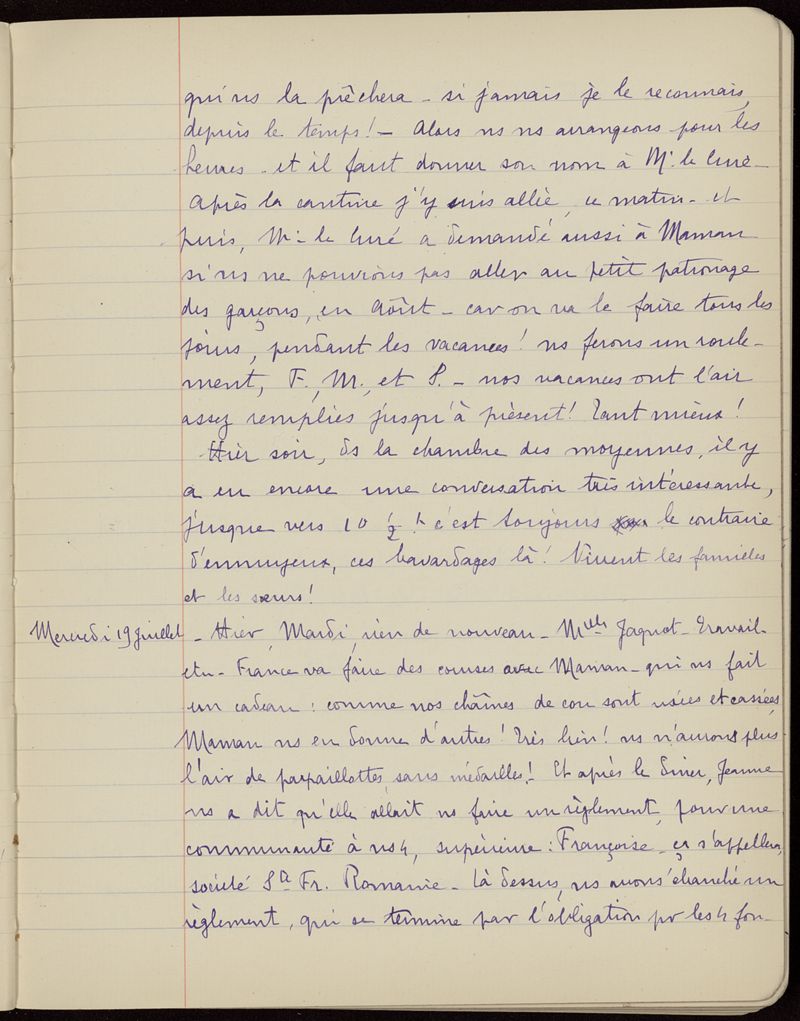 qui ns la prêchera - si jamais je le reconnais,
depuis le temps! - Alors ns ns arrangeons pour les
heures - et il faut donner son nom à Mr le Curé -
Après la cantine j'y suis allée, ce matin - et
puis, Mr le Curé a demandé aussi à Maman
si ns ne pourrions pas aller au petit patronage
des garçons, en Août - car on va le faire tous les
jours, pendant les vacances! ns ferons un roule-
ment, F., M., et S. - nos vacances ont l'air
assez remplies jusqu'à présent! Tant mieux!
Hier soir, ds la chambre des moyennes, il y
a eu encore une conversation très intéressante,
jusque vers 10 1/2 h c'est toujours le contraire
d'ennuyeux, ces bavardages là! Vivent les familles
et les sœurs!
Mercredi 19 Juillet - Hier, Mardi, rien de nouveau - Melle Jaquot - Travail -
etc - France va faire des courses avec Maman - qui ns fait
un cadeau : comme nos chaînes de cou sont usées et cassées,
Maman ns en donne d'autres! Très bien! ns n'aurons plus
l'air de parpaillottes, sans médailles! Et après le dîner, Jeanne
ns a dit qu'elle allait ns faire un règlement, pour une
communauté à ns 4, supérieure : Françoise - ça s'appellera,
société Ste Fr. Romaine - Là dessus, ns avons ébauché un
règlement, qui se termine par l'obligation pr les 4 fon-